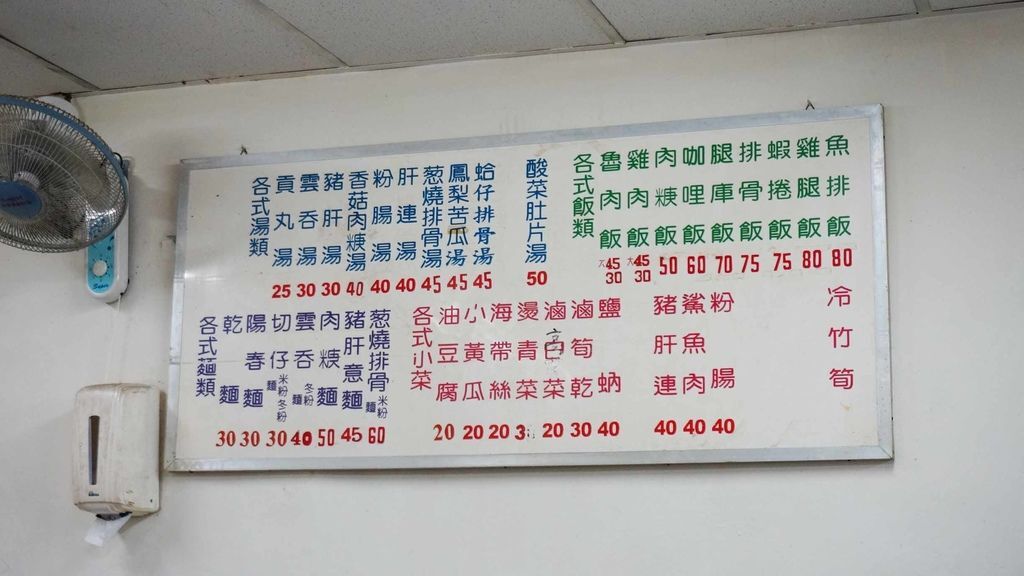 各式湯類
貢丸湯 25
雲吞湯 30
豬肝湯 30
香菇肉焿湯 40
粉腸湯 40
肝連湯 40
葱燒排骨湯 45
鳳梨苦瓜湯 45
蛤仔排骨湯 45
酸菜肚片湯 50
各式飯類
魯肉飯 大45 30
雞肉飯 大45 30
肉焿飯 50
咖哩飯 60
腿庫飯 70
排骨飯 75
蝦捲飯 75
雞腿飯 80
魚排飯 80
各式麵類
乾麵 30
陽春麵 30
切仔麵 米粉 冬粉 30
雲吞麵 冬粉 40
肉焿麵 50
豬肝意麵 45
葱燒排骨麵 米粉 60
各式小菜
油豆腐 20
小黃瓜 20
海帶絲 20
燙青菜
滷白菜 20
滷筍乾 30
鹽蚋 40
豬肝連 40
鯊魚肉 40
粉腸 40
冷竹筍